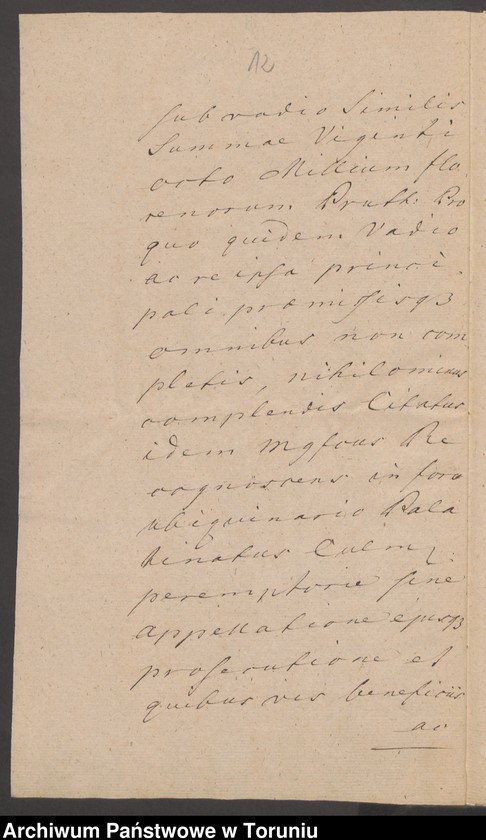 12
sub vadio Similis
Summae Viginti
octo Millium flo
renorum Prutt: Pro
quo quidem Vadio
ac re ipsa princi
pali præmissisq3
omnibus non com
pletis, nihilominus
complendis Citatus
idem Mgfcus Re
cognoscens in foro
ubiquinario Pala
tinatus Culm:
peremptorie sine
appellatione ejusq3
prosecutione et
quibus vis beneficiis
ac
Archiwum Państwowe w Toruniu